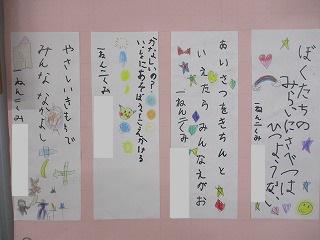 ぼくたちの
みらいにさべつは
ひつようない
一ねん二くみ
あいさつをきちんと
いえたらみんなえがお
一ねん二くみ
かなしいの?
いっしょにあそぼうとこえかける
一ねん二くみ
やさしいきもちで
みんななかよし
一ねん二くみ